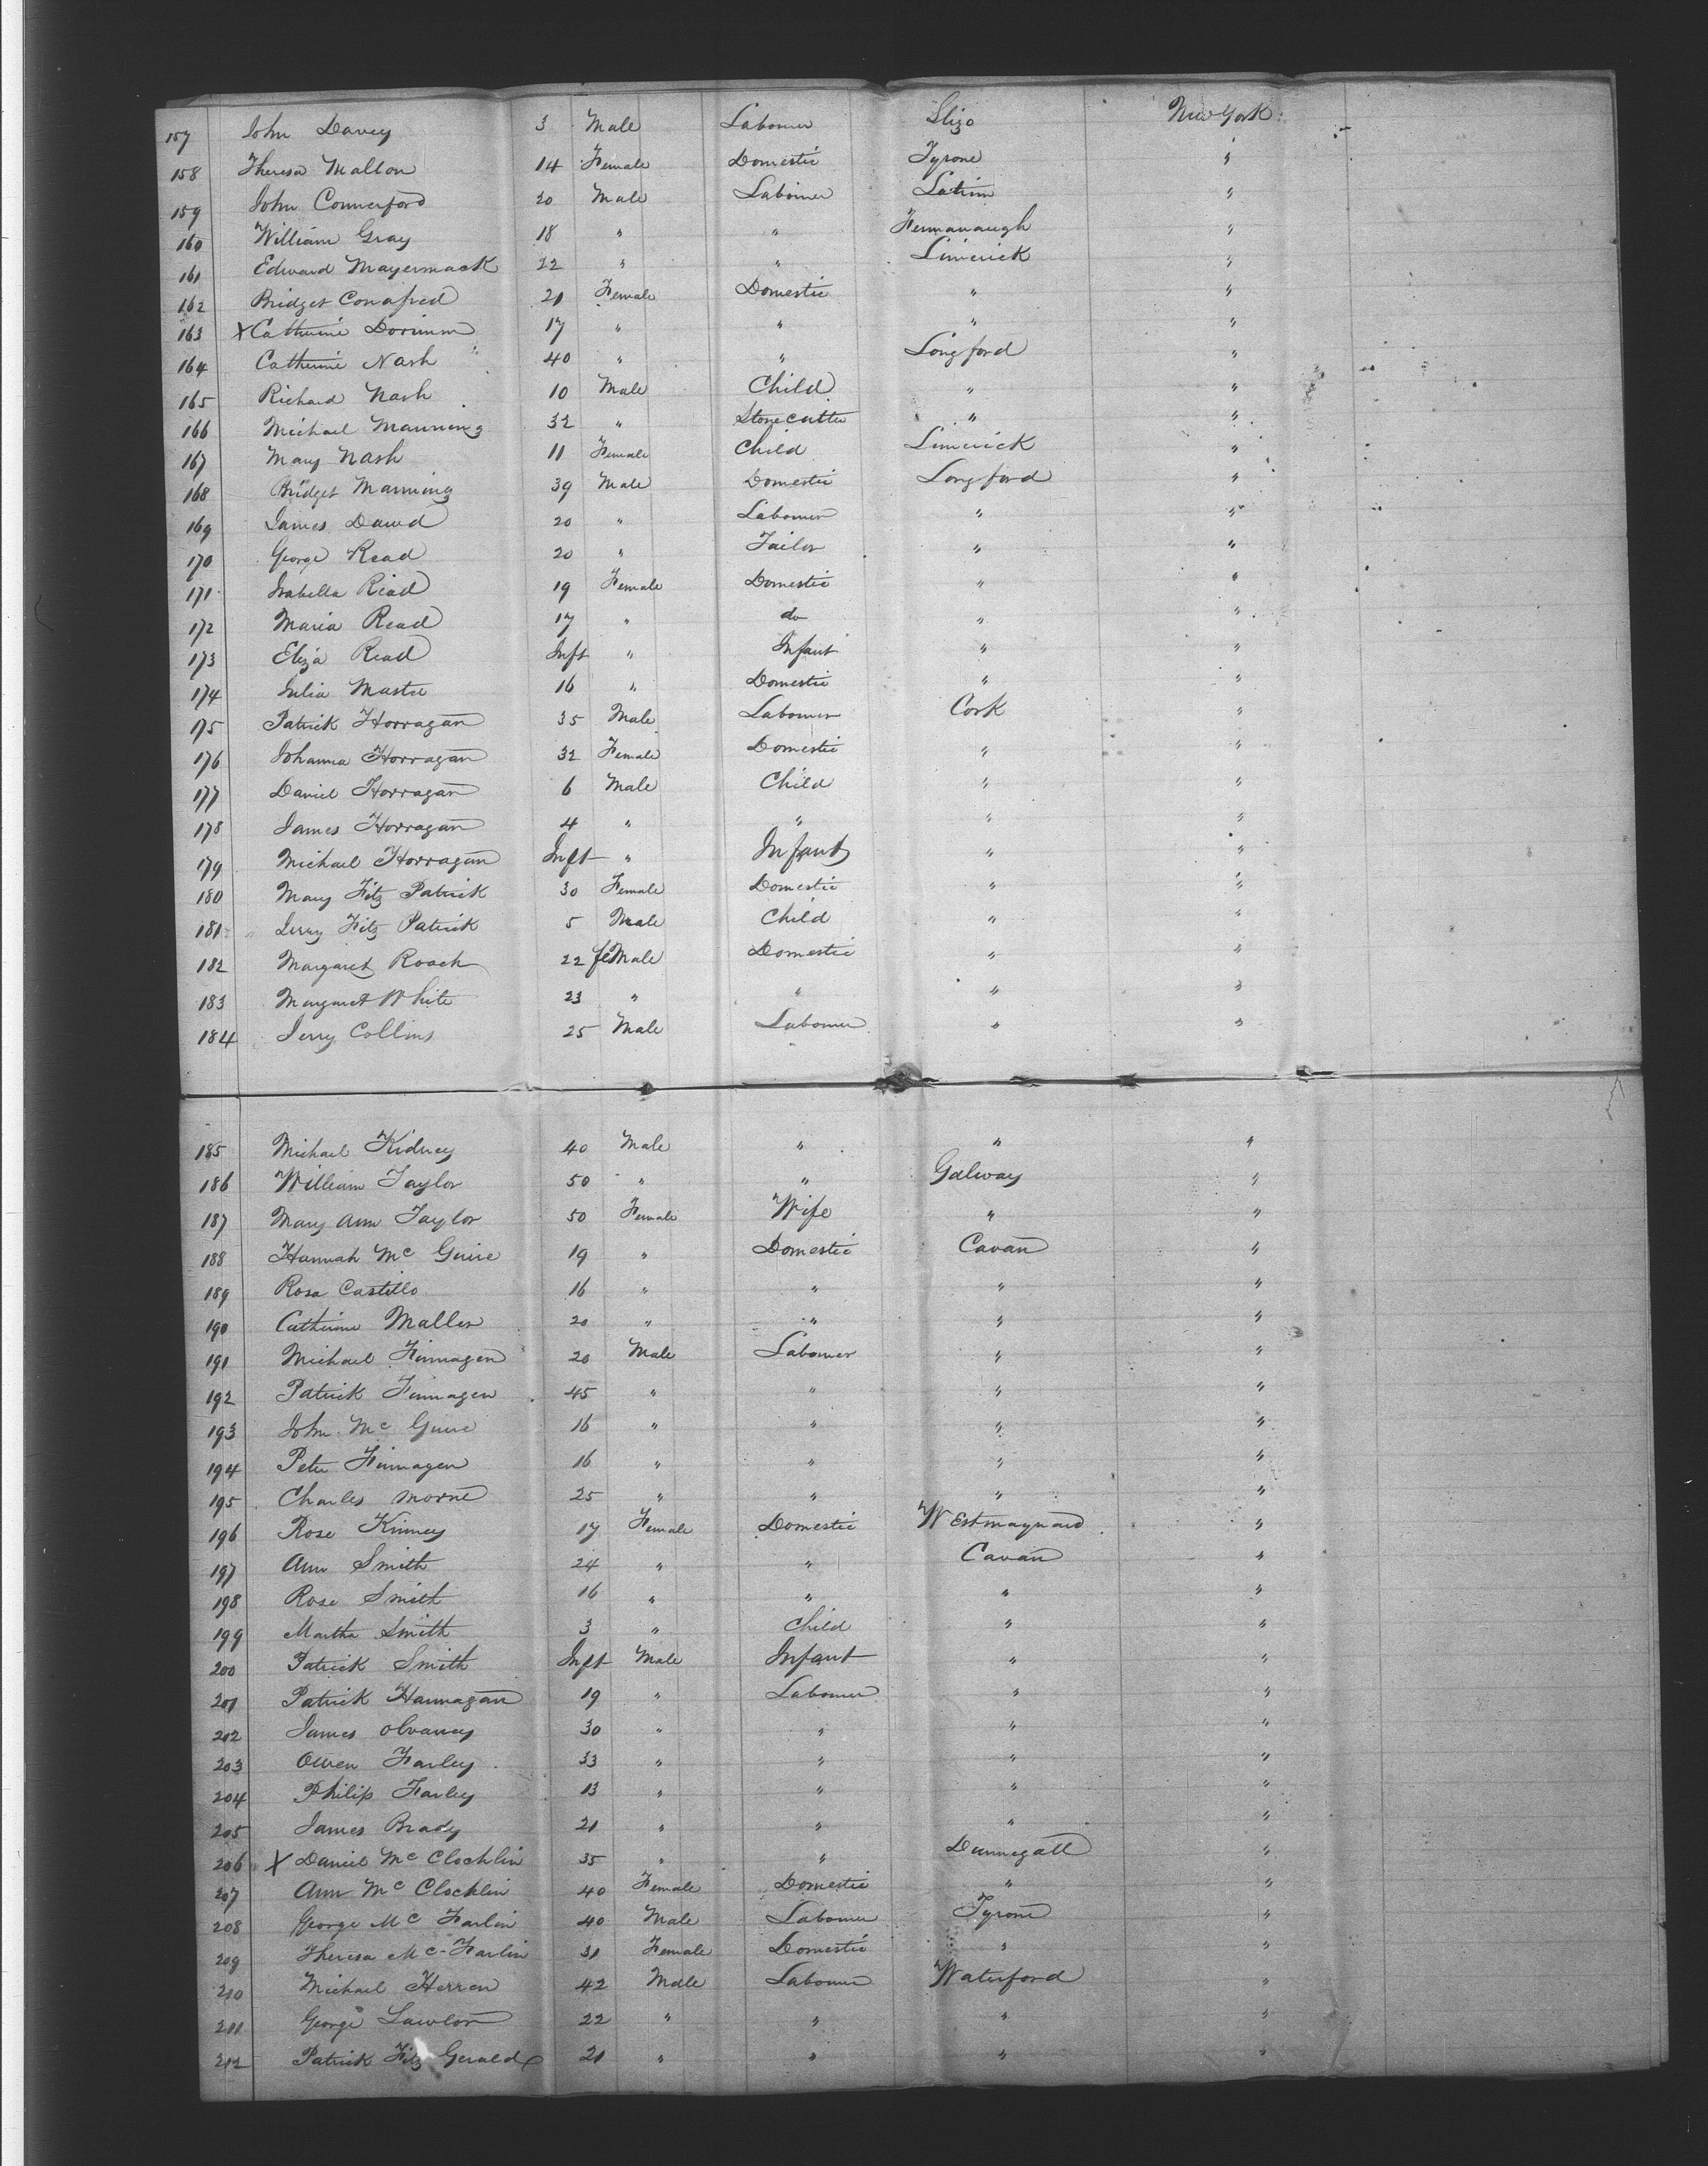 157 John Davey 3 Male Labourer Sligo New York
158 Theresa Mallon 14 Female Domestic Tyrone "
159 John Connerford 20 Male Labourer "
160 William Gray 18 " " Fermanaugh "
161 Edward Mayermack 22 " " Limerick "
162 Bridget 21 Female Domestic " "
163 X Catherine 17 " " " "
164 Catherine Nash 40 " " Longford "
165 Richard Nash 10 Male Child " "
166 Michael Manning 32 " Stonecutter " "
167 Mary Nash 11 Female Child Limerick "
168 Bridget Manning 39 Male Domestic Longford "
169 James 20 " Labourer " "
170 George Read 20 " Tailor " "
171 Isabella Read 19 Female Domestic " "
172 Maria Read 17 " do " "
173 Eliza Read Inft " Infant " "
174 Julia Master 16 " Domestic " "
175 Patrick Horragan 35 Male Labourer Cork "
176 Johanna Horragan 32 Female Domestic " "
177 Daniel Horragan 6 Male Child " "
178 James Horragan 4 " " " "
179 Michael Horragan Inft " Infant " "
180 Mary Fitz Patrick 30 Female Domestic " "
181 Jerry Fitz Patrick 5 Male Child " "
182 Margaret Roach 22 feMale Domestic " "
183 Margaret White 23 " " " "
184 Jerry Collins 25 Male Labourer " "
185 Michael Kidney 40 Male " " "
186 William Taylor 50 " " Galway "
187 Mary Ann Taylor 50 Female Wife " "
188 Hannah Mc Guire 19 " Domestic Cavan "
189 Rosa Castillo 16 " " " "
190 Catherine Maller 20 " " " "
191 Michael Finnagen 20 Male Labourer " "
192 Patrick Finnagen 45 " " " "
193 John Mc Guire 16 " " " "
194 Peter Finnagen 16 " " " "
195 Charles Morne 25 " " " "
196 Rose Kinney 17 Female Domestic "
197 Ann Smith 24 " " Cavan "
198 Rose Smith 16 " " " "
199 Martha Smith 3 " Child " "
200 Patrick Smith Inft Male Infant " "
201 Patrick Hannagan 19 " Labourer " "
202 James 30 " " " "
203 Owen Farley 33 " " " "
204 Philip Farley 13 " " " "
205 James Brady 21 " " " "
206 X Daniel Mc Clochlin 35 " " Dunnegall "
207 Ann Mc Clochlin 40 Female Domestic " "
208 George Mc Farlin 40 Male Labourer Tyrone "
209 Theresa Mc Farlin 31 Female Domestic " "
210 Michael Herren 42 Male Labourer Waterford "
211 George Lawlor 22 " " " "
212 Patrick Fitz Gerald 21 " " " "